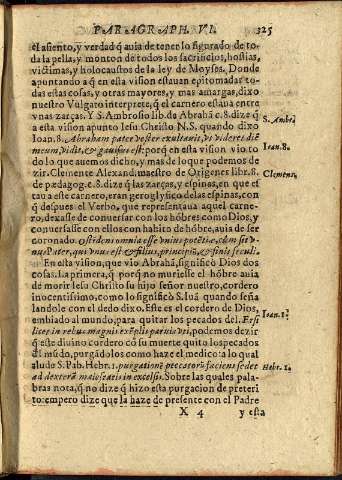 PARAGRAPH. VI. 325
el asiento, y verdad q̃ auia de tener lo figurado de to-
da la pella, y monton de todos los sacrificios, hostias,
victimas, y holocaustos de la ley de Moyses. Donde
apuntando a q̃ en esta vision estauan epitomadas to-
das estas cosas, y otras mayores, y mas amargas, dixo
nuestro Vulgato interprete, q̃ el carnero estaua entre
vnas zarças. Y S. Ambrosio lib. de Abrahã c. 8. dize q̃
a esta vision apunto Iesu Christo N. S. quando dixo
S. Ambr.
Ioan. 8. Abraham pater vester exultauit, vt videret diẽ
meum, vidit, & gauisus est: porq̃ en esta visiõ vio to
Ioan. 8.
do lo que auemos dicho, y mas de lo que podemos de
zir. Clemente Alexand. maestro de Origenes libr. 8.
Clemens.
de pædagog. c. 8. dize q̃ las zarças, y espinas, en que es
taua este carnero, eran geroglyfico de las espinas, con
q̃ despues el Verbo, que representaua aquel carne-
ro, dexasse de conuersar con los hõbres como Dios, y
conuersasse con ellos con habito de hõbre, auia de ser
coronado. Ostẽdit omnia esse vnius potẽtiæ, cùm sit v-
nus Pater, qui vnus est & filius, principiũ, & finis seculi.
En esta vision, que vio Abrahã, significò Dios dos
cosas. La primera, q̃ porq̃ no muriesse el hõbre auia
de morir Iesu Christo su hijo señor nuestro, cordero
inocentissimo, como lo significò S. Iuã quando seña
landole con el dedo dixo. Este es el cordero de Dios,
embiado al mundo, para quitar los pecados del. Et si
Ioan. 1.
licet in rebus magnis exẽplis paruis vti, podemos dezir
q̃ este diuino cordero cõ su muerte quito los pecados
dl mũdo, purgãdolos como haze el medico: a lo qual
aludo S. Pab. Hebr. 1. purgationẽ peccatorũ faciens sedet
Hebr. 1.
ad dexterã maiestatis in excelsis. Sobre las quales pala-
bras nota, q̃ no dize q̃ hizo esta purgacion de preteri
to: empero dize que la haze de presente con el Padre
X 4 y esta